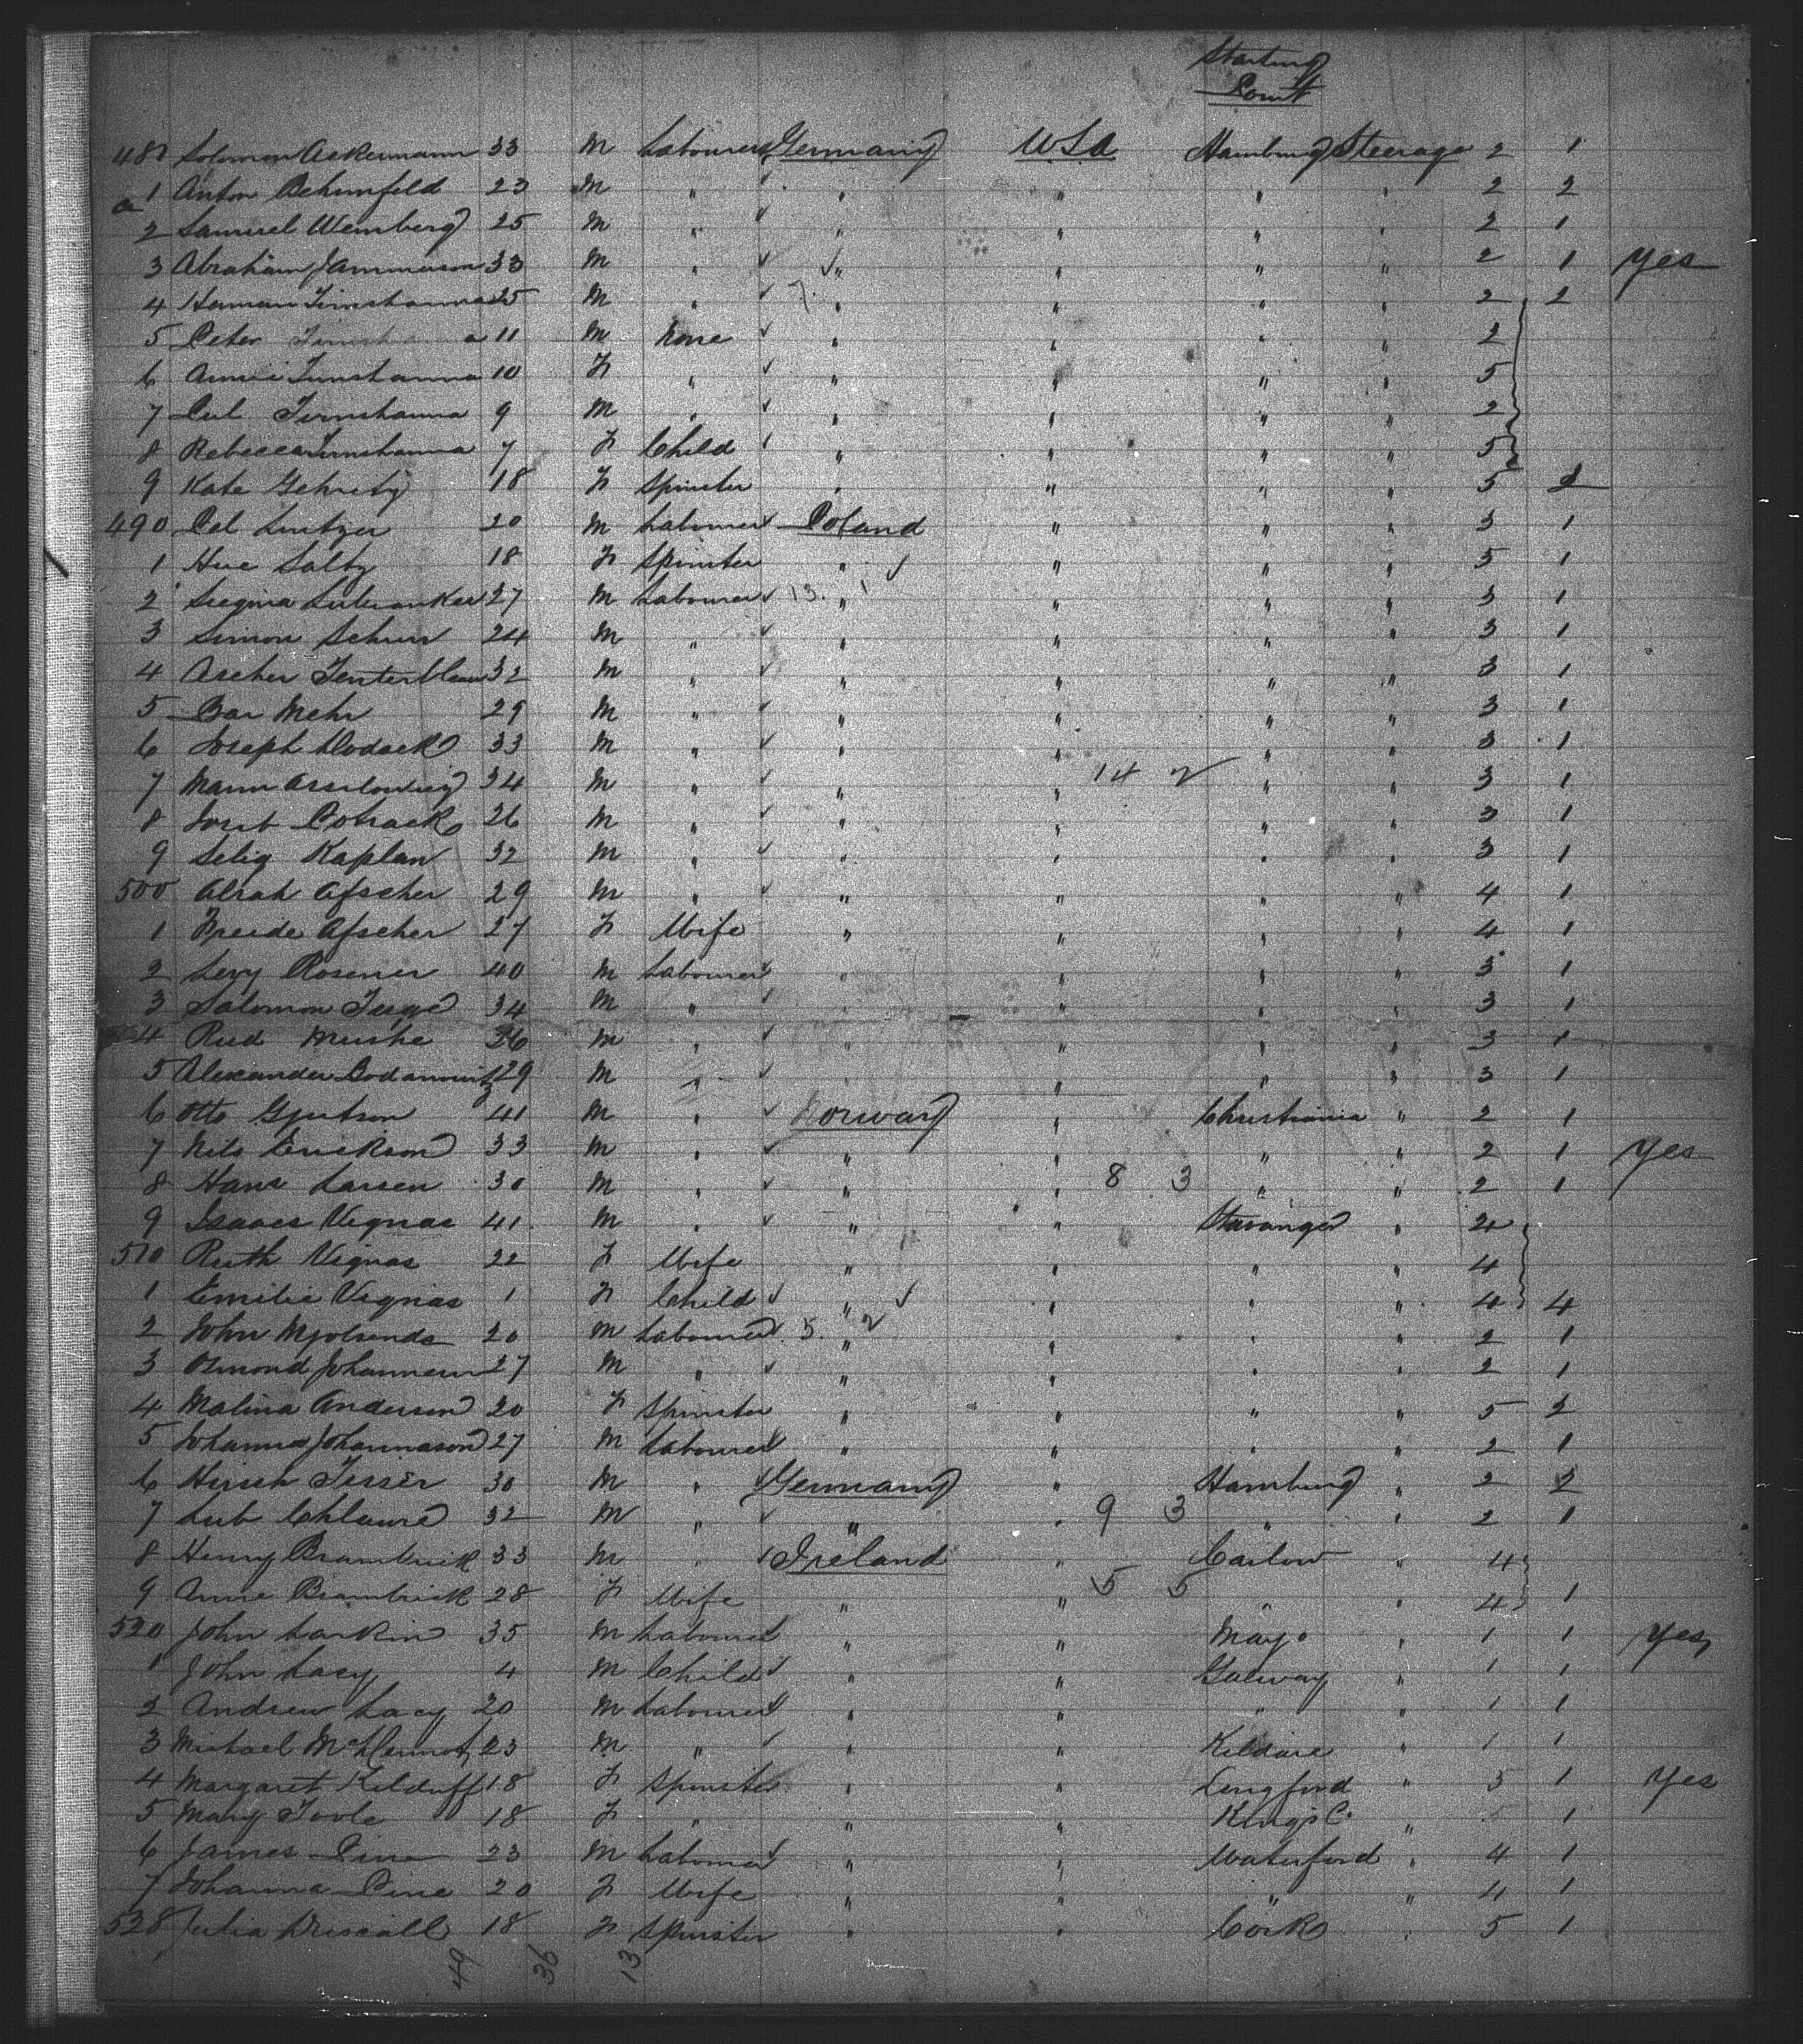 Starting
Point
481 Solomon Ackermann 33 M Labourer Germany USA Hamburg Steerage 2 1
a 1 Anton Behmfeld 23 M " " " " " 2 2
2 Samuel Weinberg 25 M " " " " " 2 1
3 Abraham Jammerson 33 M " " " " " 2 1 Yes
4 Herman 25 M " 7 " " " " 2 2
5 Peter 11 M None " " " " 2
6 Annie 10 F " " " " " 5
7 9 M " " " " " 2
8 Rebecca 7 F Child " " " " 5
9 Kate 18 F Spinster " " " " 5 2
490 20 M Labourer Poland " " " 3 1
1 Hue Saltz 18 F Spinster " " " " 5 1
2 27 M Labourer 13 1 " " " " 3 1
3 Simon Schurr 24 M " " " " " 3 1
4 Ascher 32 M " " " " " 3 1
5 Bar Mehr 29 M " " " " " 3 1
6 Joseph 33 M " " " " " 3 1
7 34 M " " " 14 2 " " 3 1
8 26 M " " " " " 3 1
9 Selig Kaplan 32 M " " " " " 3 1
500 Abrah Afscher 29 M " " " " " 4 1
1 Freide Afscher 27 F Wife " " " " 4 1
2 Levy Rosener 40 M Labourer " " " " 3 1
3 Salomon 34 M " " " " " 3 1
4 Rud Mushe 36 M " " " " " 3 1
5 Alexander 29 M " " " " " 3 1
6 Otto 41 M " Norway " Christiania " 2 1
7 Nils Erickson 33 M " " " " " 2 1 Yes
8 Hans Larsen 30 M " " " 8 3 " " 2 1
9 Isaacs Vignas 41 M " " " Stavanger " 4
510 Ruth Vignas 22 F Wife " " " " 4
1 Emilie Vignas 1 F Child " " " " 4 4
2 John 20 M Labourer 5 2 " " " " 2 1
3 Osmond 27 M " " " " " 2 1
4 Malina Anderson 20 F Spinster " " " " 5 2
5 Johannes Johannason 27 M Labourer " " " " 2 1
6 Hirsch 30 M " Germany " Hamburg " 2 2
7 32 M " " " 9 3 " " 2 1
8 Henry Brambrick 33 M " Ireland " Carlow " 4
9 Anne Brambrick 28 F Wife " " 5 5 " " 4 1
520 John Larkin 35 M Labourer " " Mayo " 1 1 Yes
1 John Lacy 4 M Child " " Galway " 1 1
2 Andrew Lacy 20 M Labourer " " " " 1 1
3 Michael McDermot 23 M " " " Kildare " 1 1
4 Margaret Kilduff 18 F Spinster " " Longford " 5 1 Yes
5 Mary Toole 18 F " " " Kings Co " 5 1
6 James Pine 23 M Labourer " " Waterford " 4 1
7 Johanna Pine 20 F Wife " " " " 4 1
528 Julia Driscoll 18 F Spinster " " Cork " 5 1
49 36 13